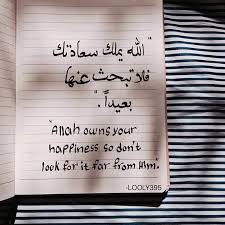 "الله يملك سعادتك
فلا تبحث عنها
بعيداً."
"Allah owns your
happiness so don't
look for it far from Him."
-LOOLY395